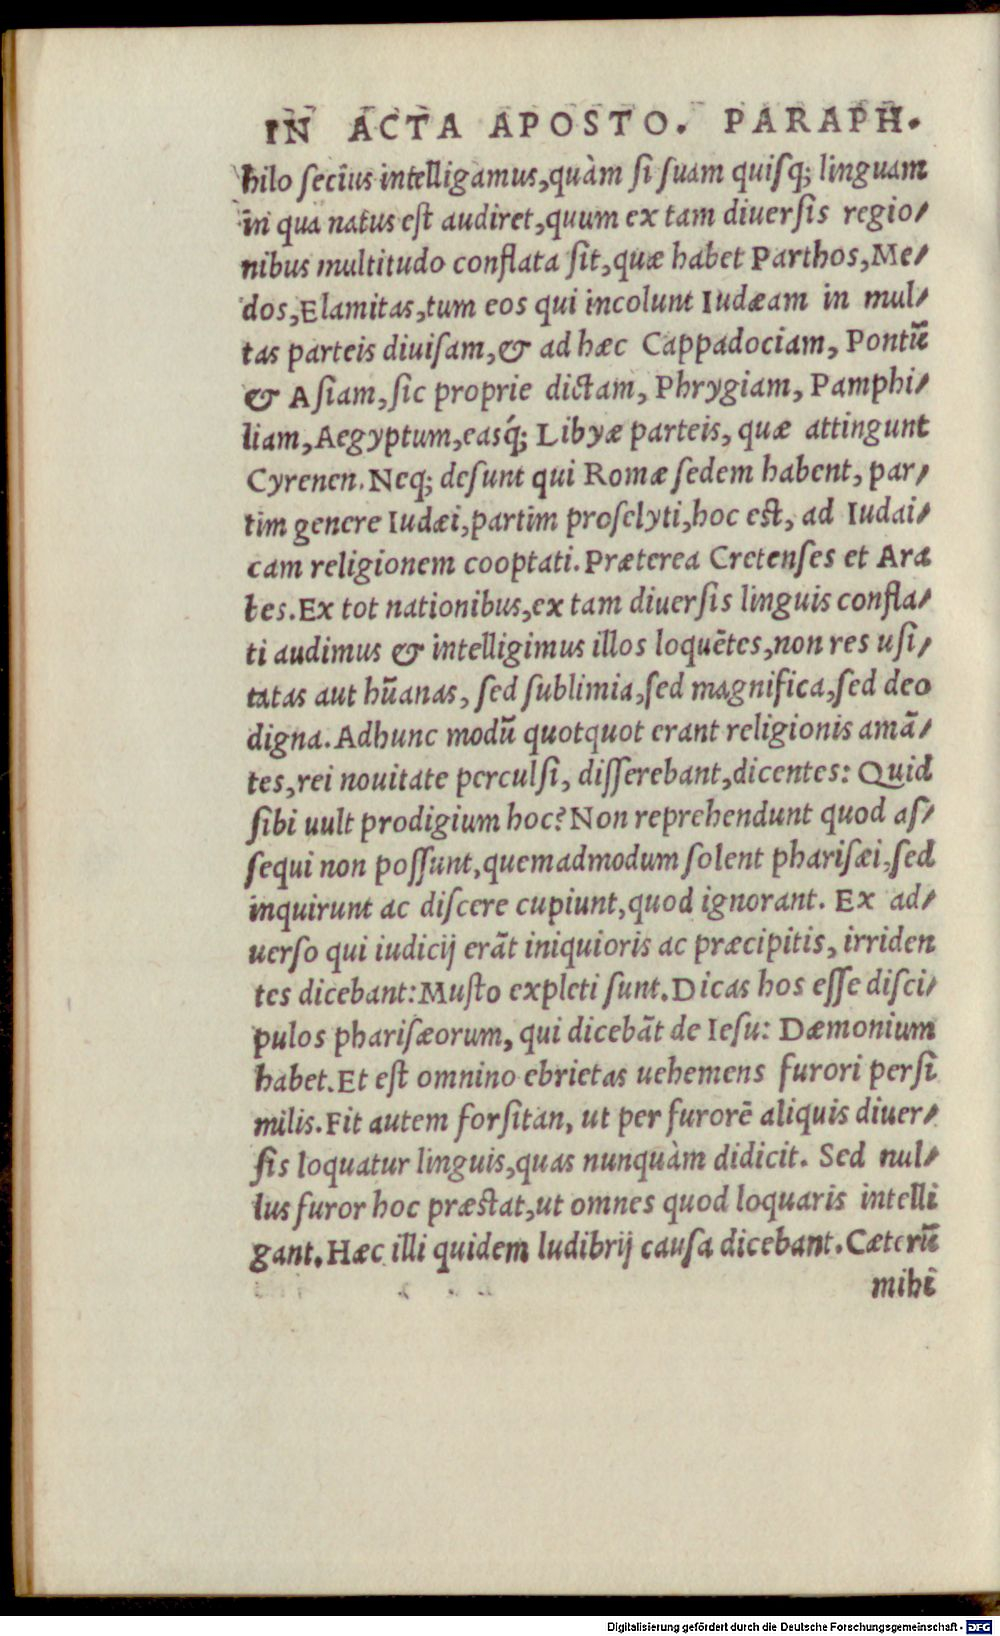 IN ACTA APOSTO. PARAPH.
hilo secius intelligamus,quàm si suam quisq; linguam
in qua natus est audiret,quum ex tam diuersis regio/
nibus multitudo conflata sit,quæ habet Parthos,Me/
dos,Elamitas,tum eos qui incolunt Iudæam in mul/
tas parteis diuisam,& ad hæc Cappadociam, Pontū
& Asiam,sic proprie dictam, Phrygiam, Pamphi/
liam,Aegyptum,easq́; Libyæ parteis, quæ attingunt
Cyrenen.Neq; desunt qui Romæ sedem habent, par/
tim genere Iudæi,partim proselyti,hoc est, ad Iudai/
cam religionem cooptati.Præterea Cretenses et Ara
bes.Ex tot nationibus,ex tam diuersis linguis confla/
ti audimus & intelligimus illos loquētes,non res usi/
tatas aut hūanas, sed sublimia,sed magnifica,sed deo
digna.Adhunc modū quotquot erant religionis amā/
tes,rei nouitate perculsi, disserebant,dicentes: Quid
sibi uult prodigium hoc?Non reprehendunt quod as/
sequi non possunt,quemadmodum solent pharisæi,sed
inquirunt ac discere cupiunt,quod ignorant. Ex ad/
uerso qui iudicij erāt iniquioris ac præcipitis, irriden
tes dicebant:Musto expleti sunt.Dicas hos esse disci/
pulos pharisæorum, qui dicebāt de Iesu: Dæmonium
habet.Et est omnino ebrietas uehemens furori persi
milis.Fit autem forsitan, ut per furorē aliquis diuer/
sis loquatur linguis,quas nunquàm didicit. Sed nul/
lus furor hoc præstat,ut omnes quod loquaris intelli
gant.Hæc illi quidem ludibrij causa dicebant.Cæterū
mihi
Digitalisierung gefördert durch die Deutsche Forschungsgemeinschaft - DFG